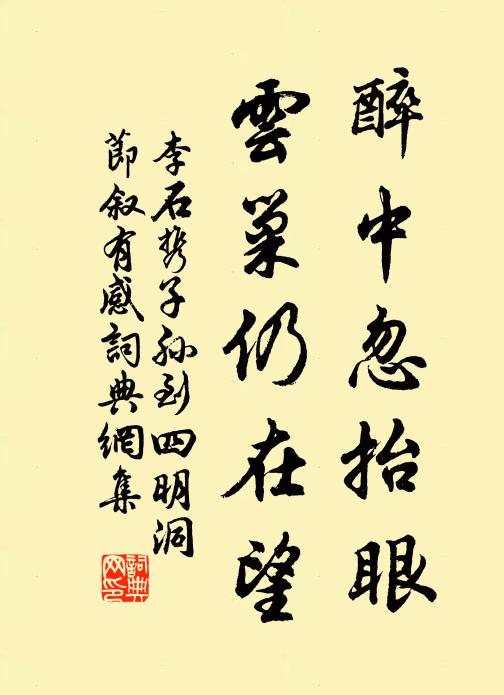 醉中忽抬眼
雲巢仍在望
李石携子孫到四明洞
節叙有感詞典網集
詞典网印